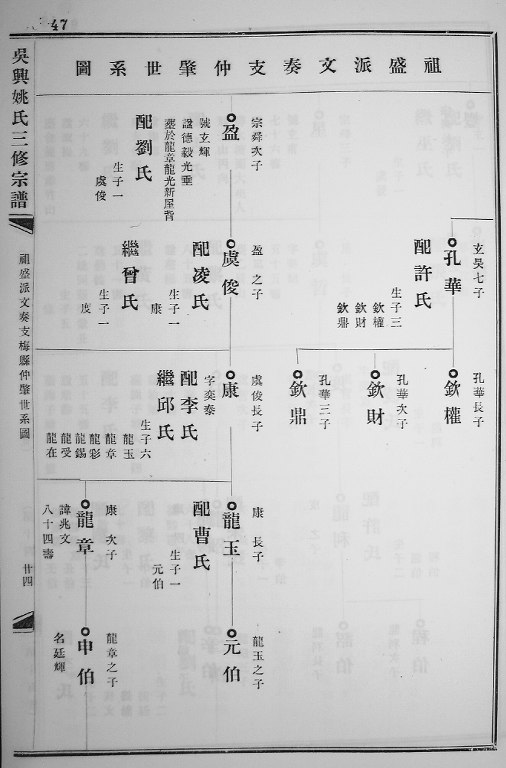 47
祖盛派文奏支仲肇世系圖
玄吳七子
孔華
配許氏
生子三
欽權
欽財
欽鼎
孔華長子
欽權
孔華次子
欽財
孔華三子
欽鼎
宗舜次子
盈
號玄輝
諡德毅光垂
塟於龍章龍光新屋背
配劉氏
生子一
虞俊
盈之子
虞俊
配凌氏
生子一
康
繼曾氏
生子一
度
虞俊長子
康
字奕泰
配李氏
繼邱氏
生子六
龍玉
龍章
龍彩
龍錫
龍受
龍在
康長子
龍玉
配曹氏
生子一
元伯
龍玉之子
元伯
康次子
龍章
諱兆文
八十四壽
龍章之子
申伯
名廷輝
吳興姚氏三修宗譜
祖盛派文奏支梅縣仲肇世系圖
廿四